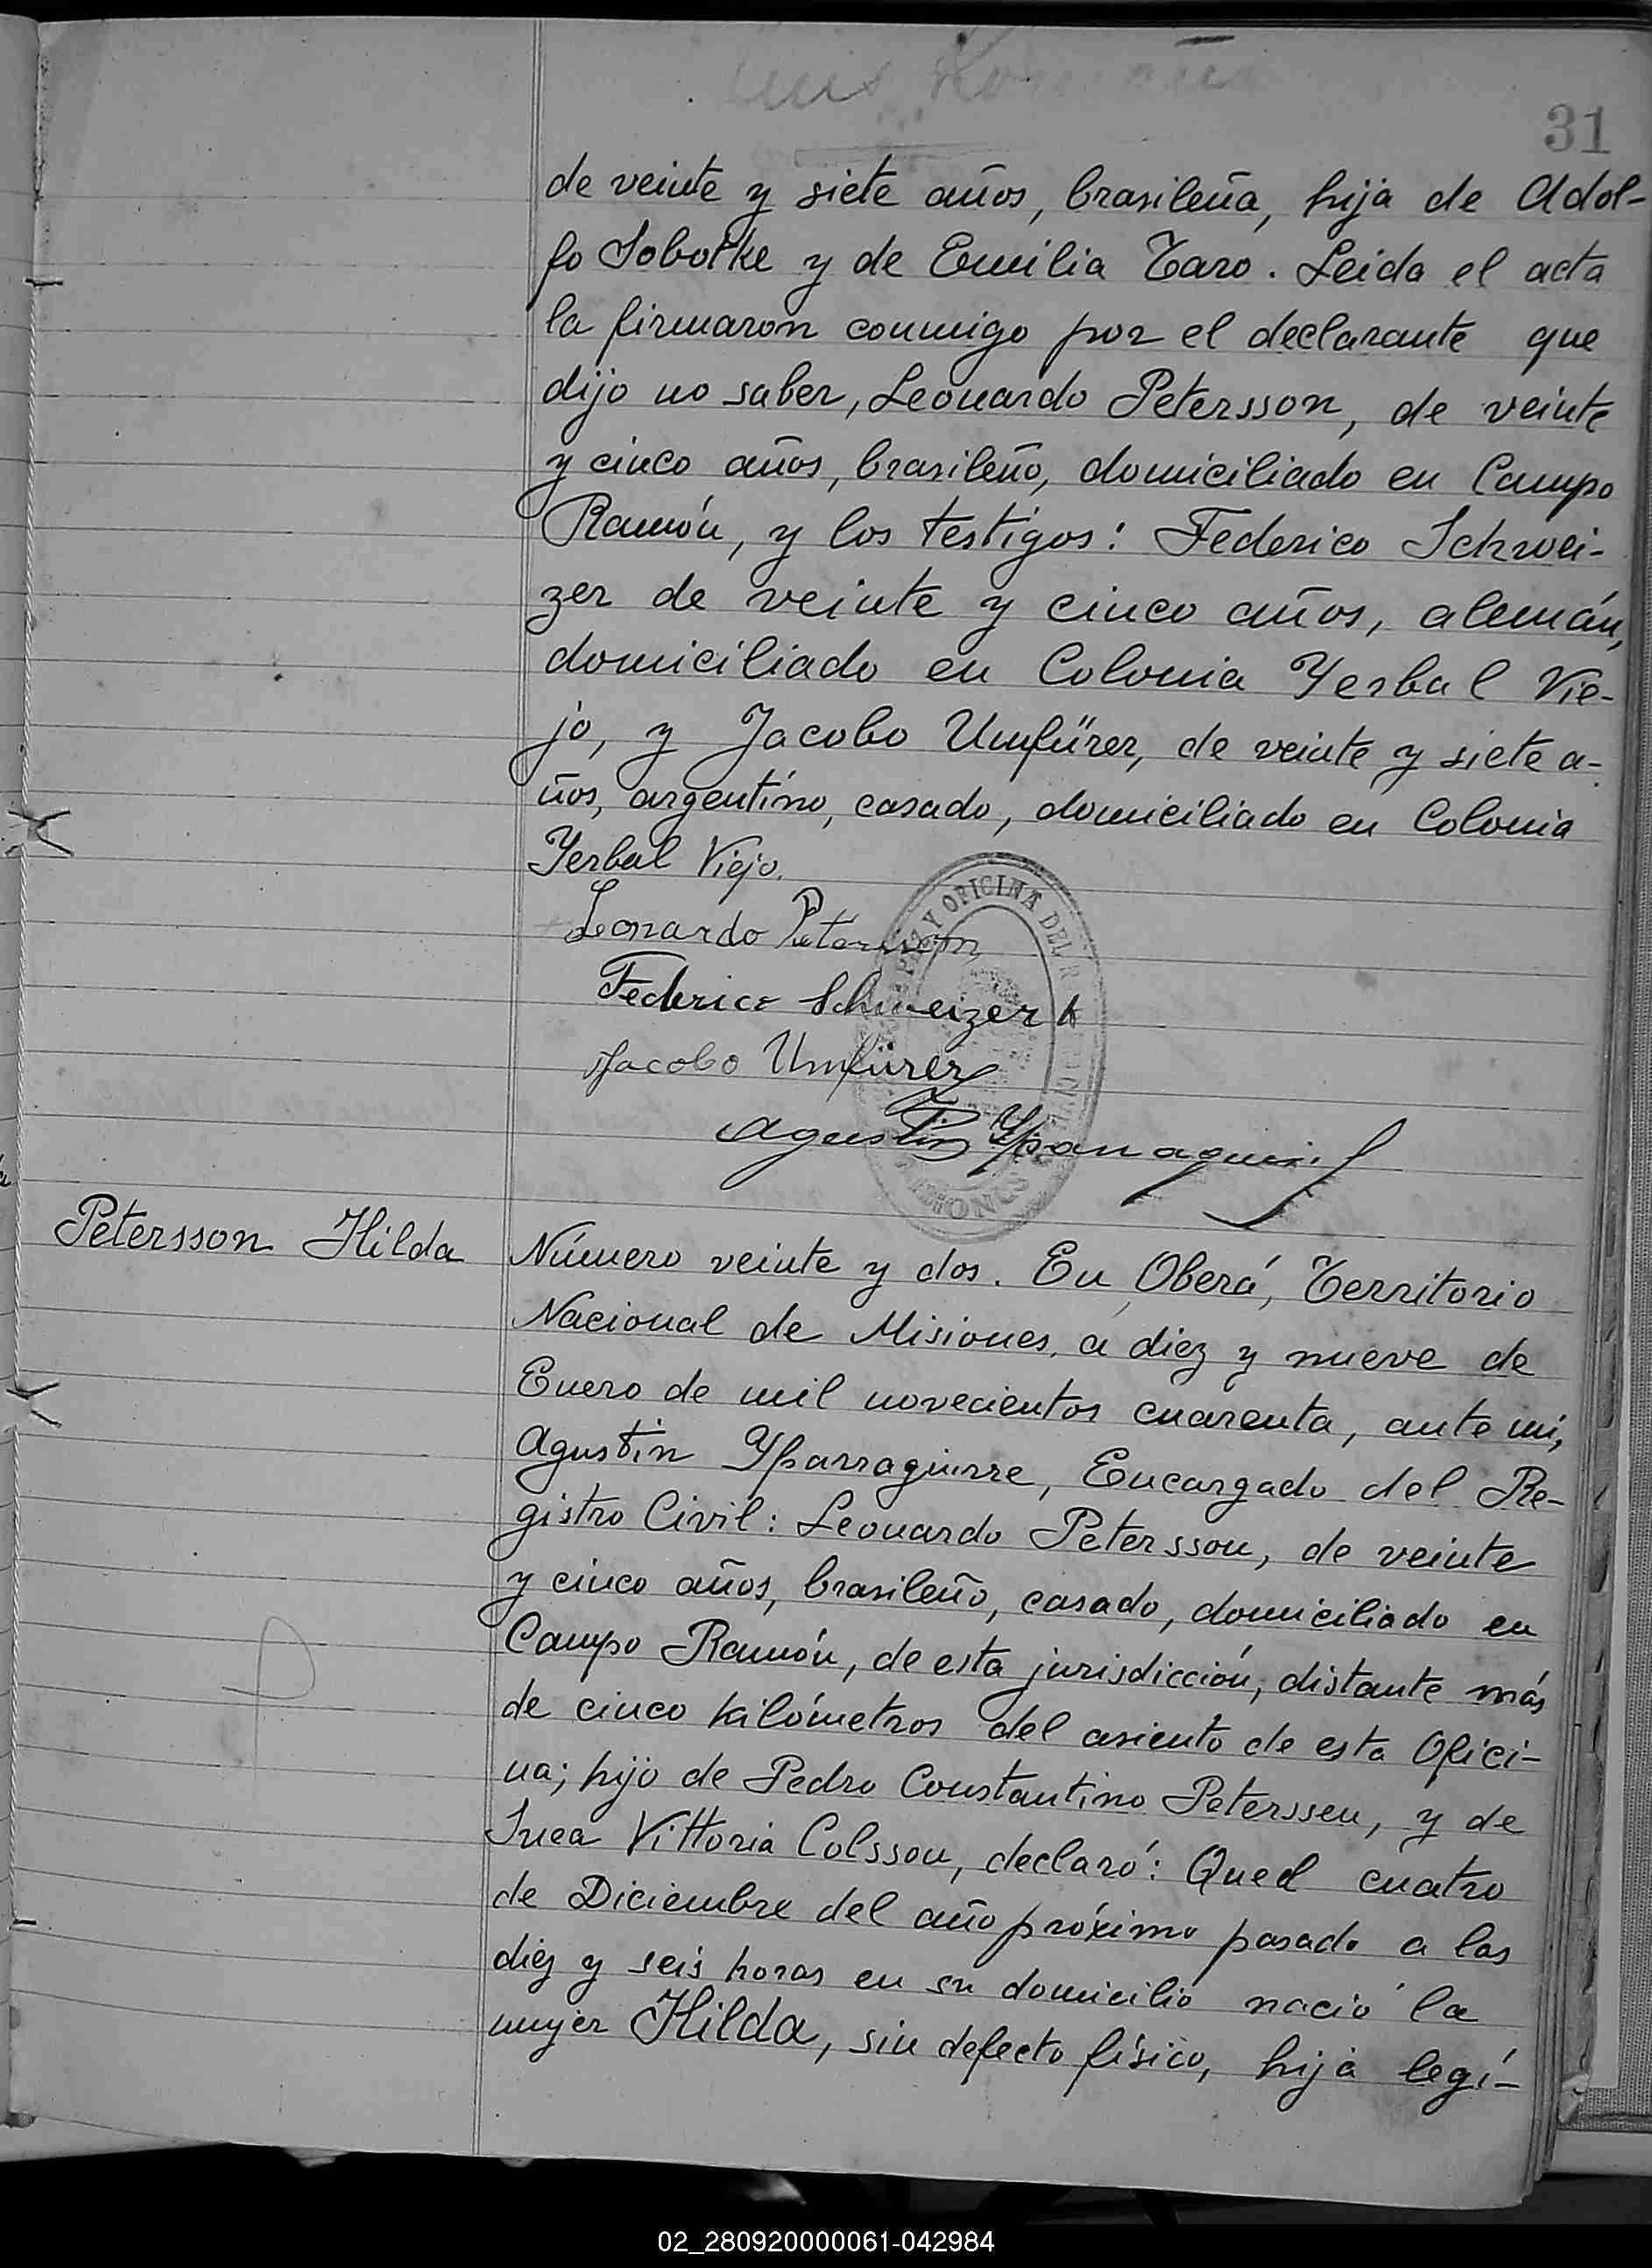 31
de veinte y siete años, brasileña, hija de Adol-
fo Sobotke y de Emilia Taro. Leida el acta
la firmaron conmigo por el declarante que
dijo no saber, Leonardo Petersson, de veinte
y cinco años, brasileño, domiciliado en Campo
Ramón, y los testigos: Federico Schwei-
zer de veinte y cinco años, alemán,
domiciliado en Colonia Yerbal Vie-
jo, y Jacobo Umfürer, de veinte y siete a-
ños, argentino, casado, domiciliado en Colonia
Yerbal Viejo.
Leonardo Petersson
Federico Schweizer
Jacobo Umfürer
PAZ Y OFICINA DEL
Agustin Yparraguirre
Petersson Hilda
Número veinte y dos. En Oberá, Territorio
Nacional de Misiones, a diez y nueve de
Enero de mil novecientos cuarenta, ante mi,
Agustin Yparraguirre, Encargado del Re-
gistro Civil: Leonardo Petersson, de veinte
y cinco años, brasileño, casado, domiciliado en
Campo Ramón, de esta jurisdicción, distante más
de cinco kilómetros del asiento de esta Ofici-
na; hijo de Pedro Constantino Peterssen, y de
Vittoria Colsson, declaró: Que el cuatro
de Diciembre del año próximo pasado a las
diez y seis horas en su domicilio nació la
mujer Hilda, sin defecto físico, hija legí-
02_280920000061-042984